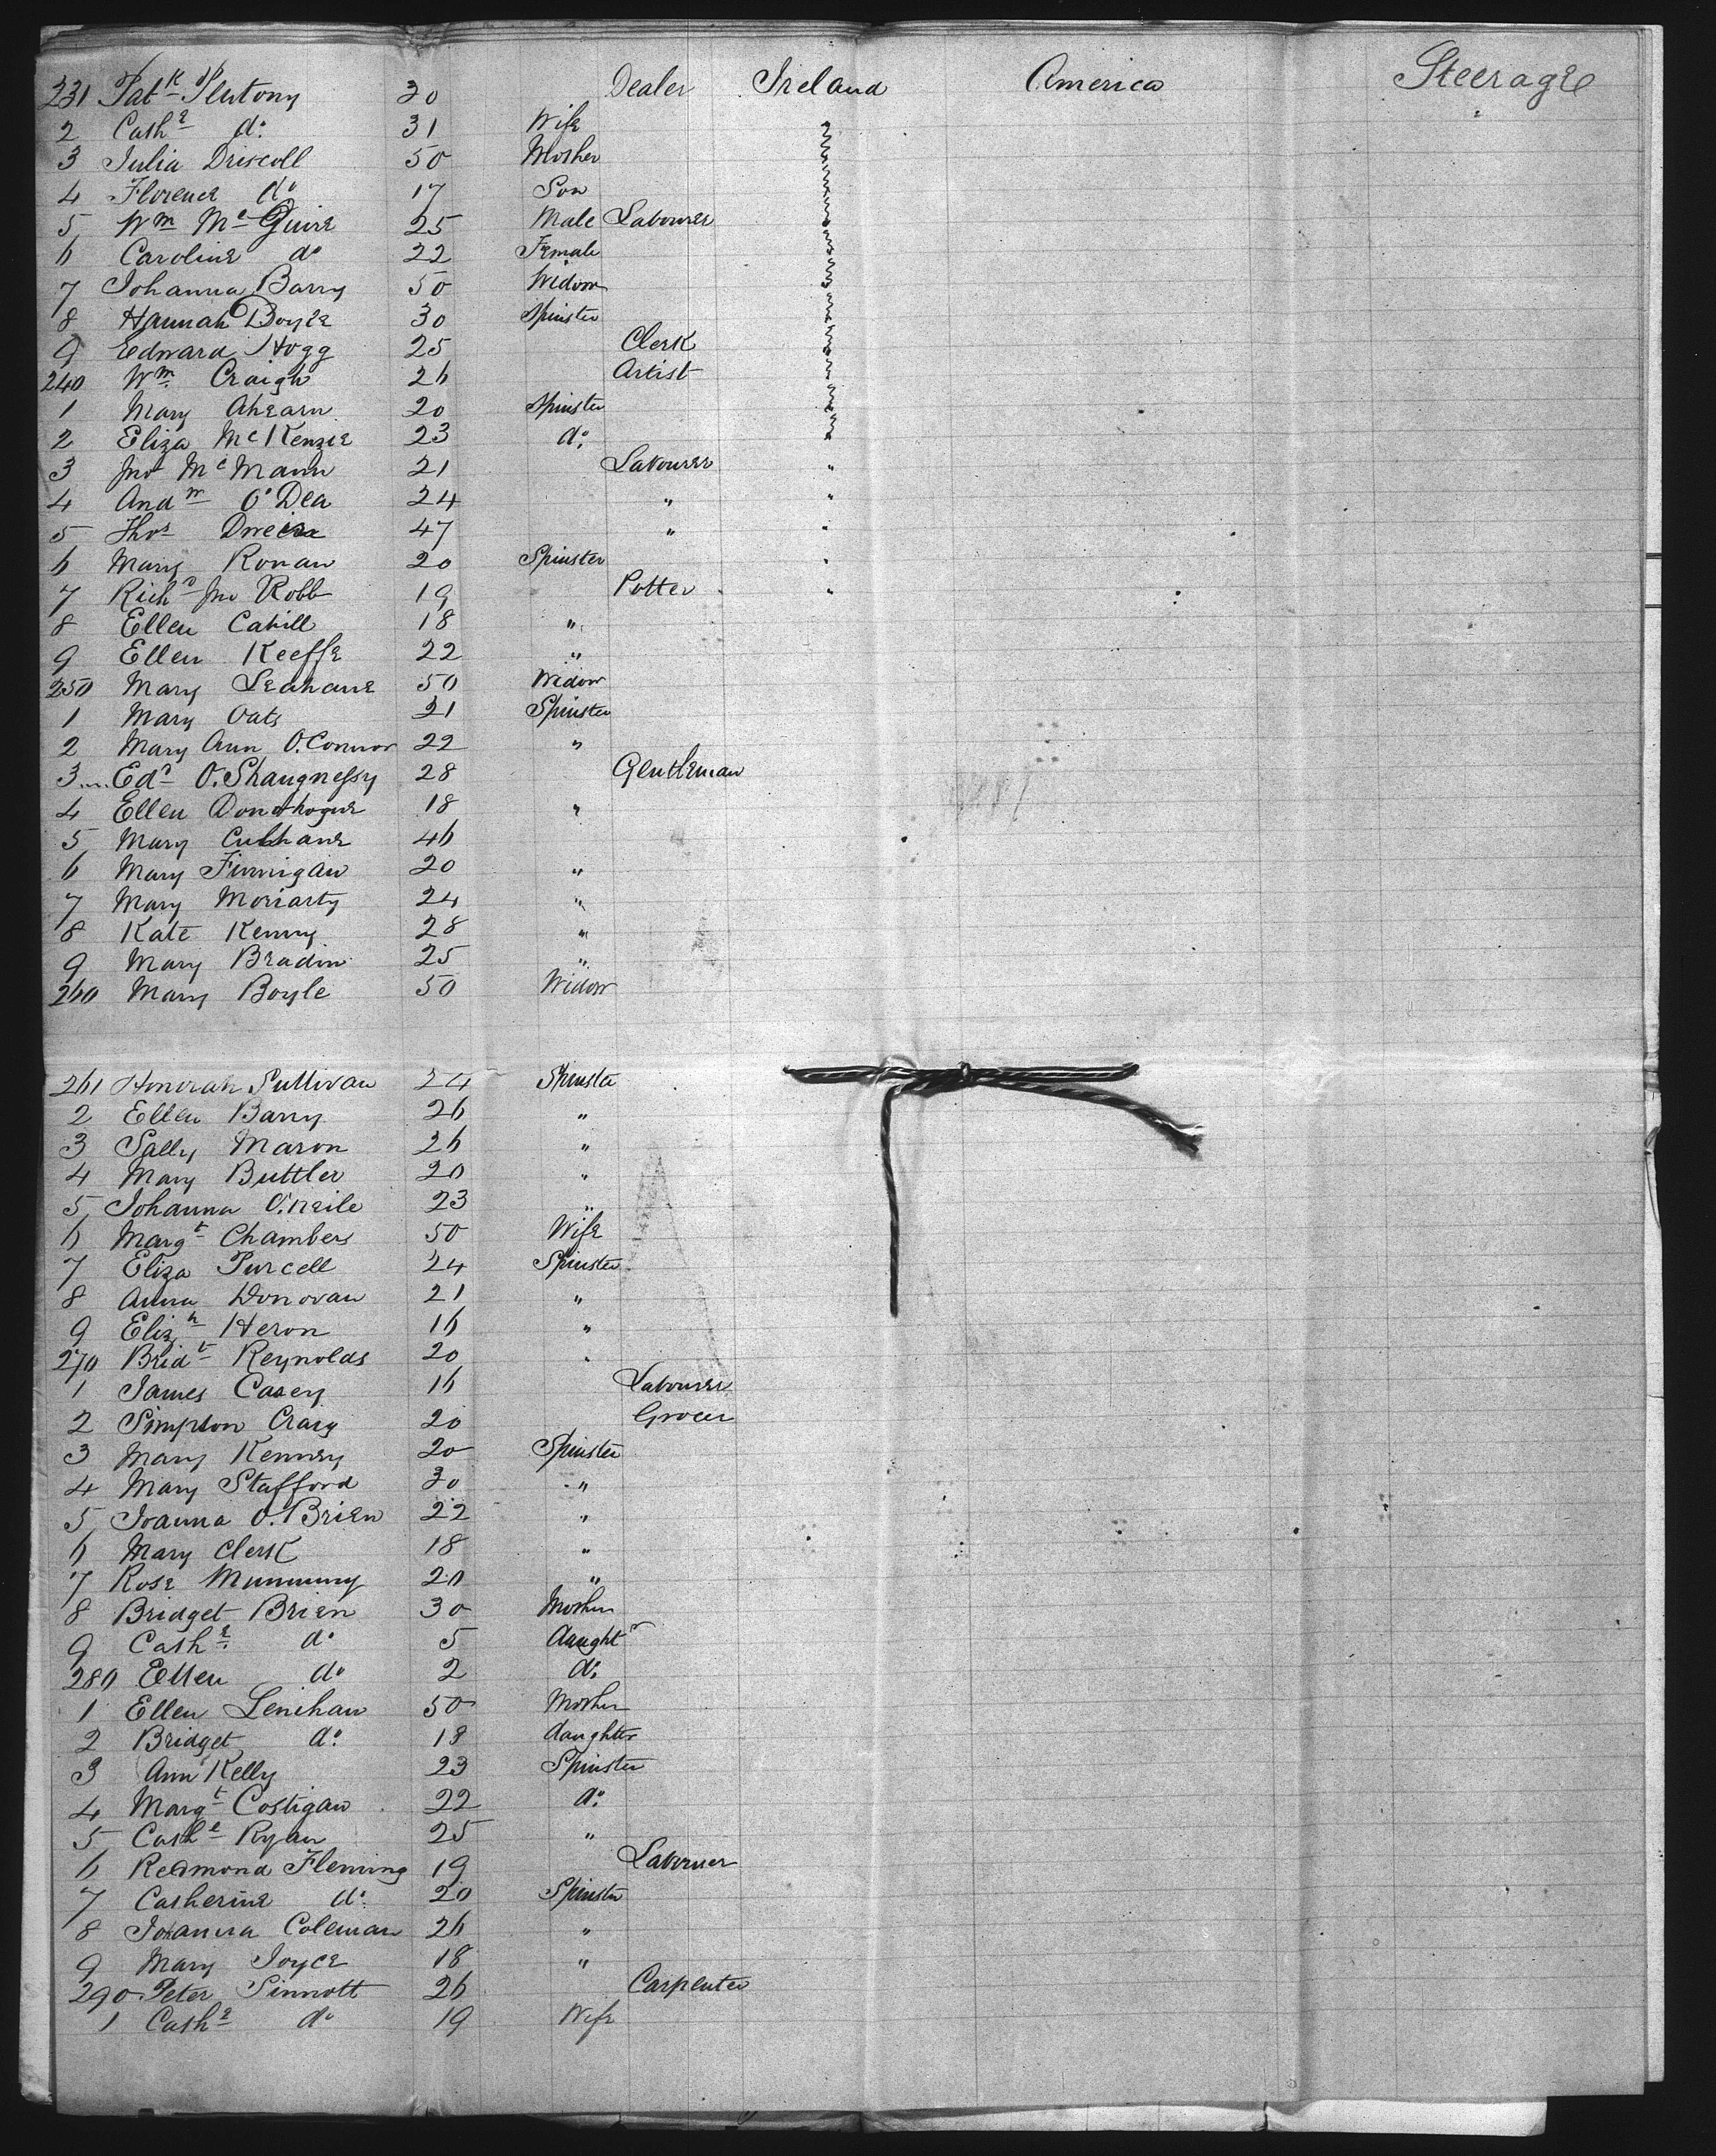 231 Patk Dealer 30 Ireland America Steerage
2 Cathe do 31 Wife "
3 Julia Driscoll 50 Mother "
4 Florence do 17 Son "
5 Wm McGuire 25 Male Labourer "
6 Caroline do 22 Female "
7 Johanna Barry 50 Widow "
8 Hannah Boyle 30 Spinster "
9 Edward Hogg 25 Clerk "
240 Wm Craigh 26 Artist "
1 Mary Ahearn 20 Spinster "
2 Eliza McKenzie 23 do "
3 Jno McMann 21 Labourer "
4 Andw O'Dea 24 " "
5 Thos 47 " "
6 Mary Ronan 20 Spinster "
7 Richd Jno Robb 19 Potter "
8 Ellen Cahill 18 "
9 Ellen Keeffe 22 "
250 Mary Leahane 50 Widow
1 Mary Oats 21 Spinster
2 Mary Ann O.Connor 22 "
3 Edd O.Shaugnessy 28 Gentleman
4 Ellen Donohogue 18 "
5 Mary Culhane 46
6 Mary Finnigan 20 "
7 Mary Moriarty 24 "
8 Kate Kenny 28 "
9 Mary Bradin 25 "
260 Mary Boyle 50 Widow
261 Honorah Sullivan 24 Spinster
2 Ellen Barry 26 "
3 Sally Mason 26 "
4 Mary Buttler 20 "
5 Johanna O.Neile 23 "
6 Margt Chambers 50 Wife
7 Eliza Purcell 24 Spinster
8 Anna Donovan 21 "
9 Elizh Heron 16 "
270 Bridt Reynolds 20 "
1 James Casey 16 Labourer
2 Simpson Craig 20 Grocer
3 Mary Kenney 20 Spinster
4 Mary Stafford 30 "
5 Joanna O.Brien 22 "
6 Mary Clerk 18 "
7 Rose 20 "
8 Bridget Brien 30 Mother
9 Cathe do 5 daughtr
280 Ellen do 2 do
1 Ellen Lenihan 50 Mother
2 Bridget do 18 daughter
3 Ann Kelly 23 Spinster
4 Margt Costigan 22 do
5 Cathe Ryan 25 "
6 Redmond Fleming 19 Labourer
7 Catherine do 20 Spinster
8 Johanna Coleman 26 "
9 Mary Joyce 18 "
290 Peter Sinnott 26 Carpenter
1 Cathe do 19 Wife